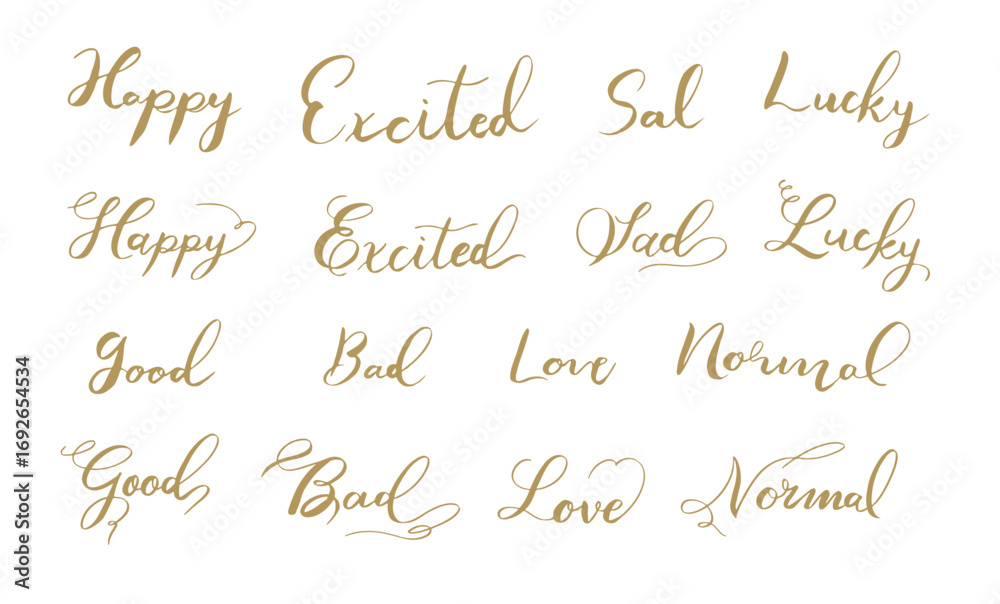 Happy Excited Sal Lucky
Happy Excited Sad Lucky
Good Bad Love Normal
Good Bad Love Normal
Adobe Stock | #1692654534